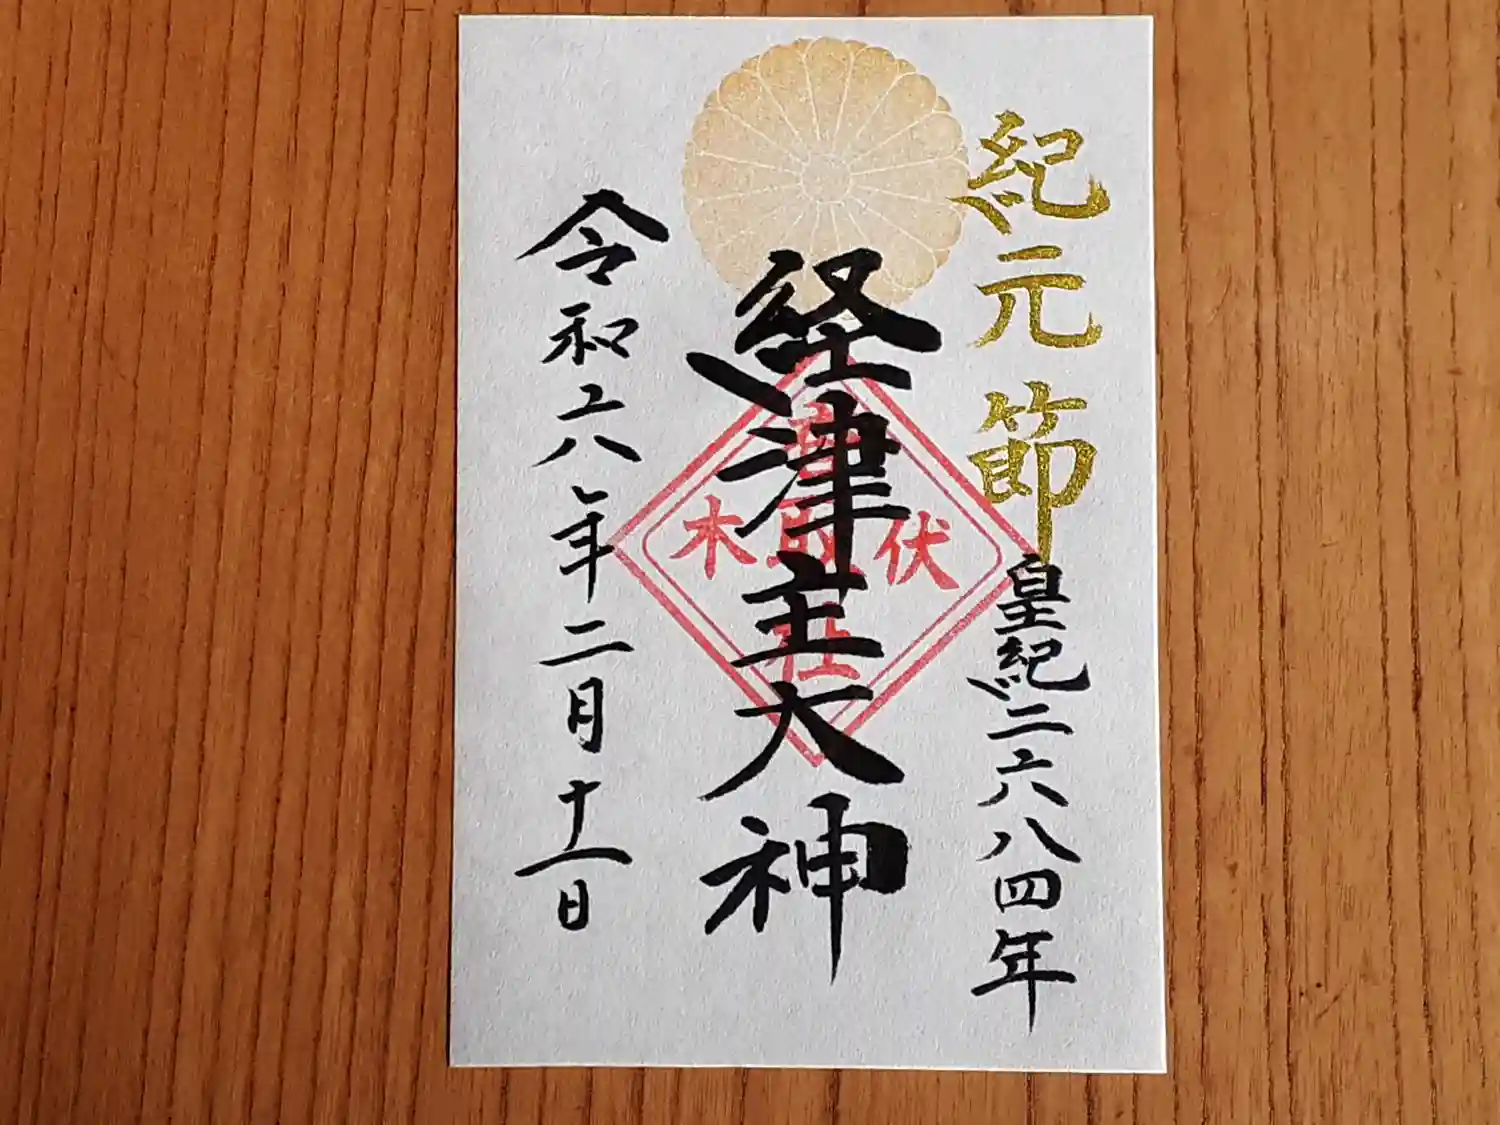 紀元節
皇紀二六八四年
経津主大神
伏木
香取社
令和六年二月十一日